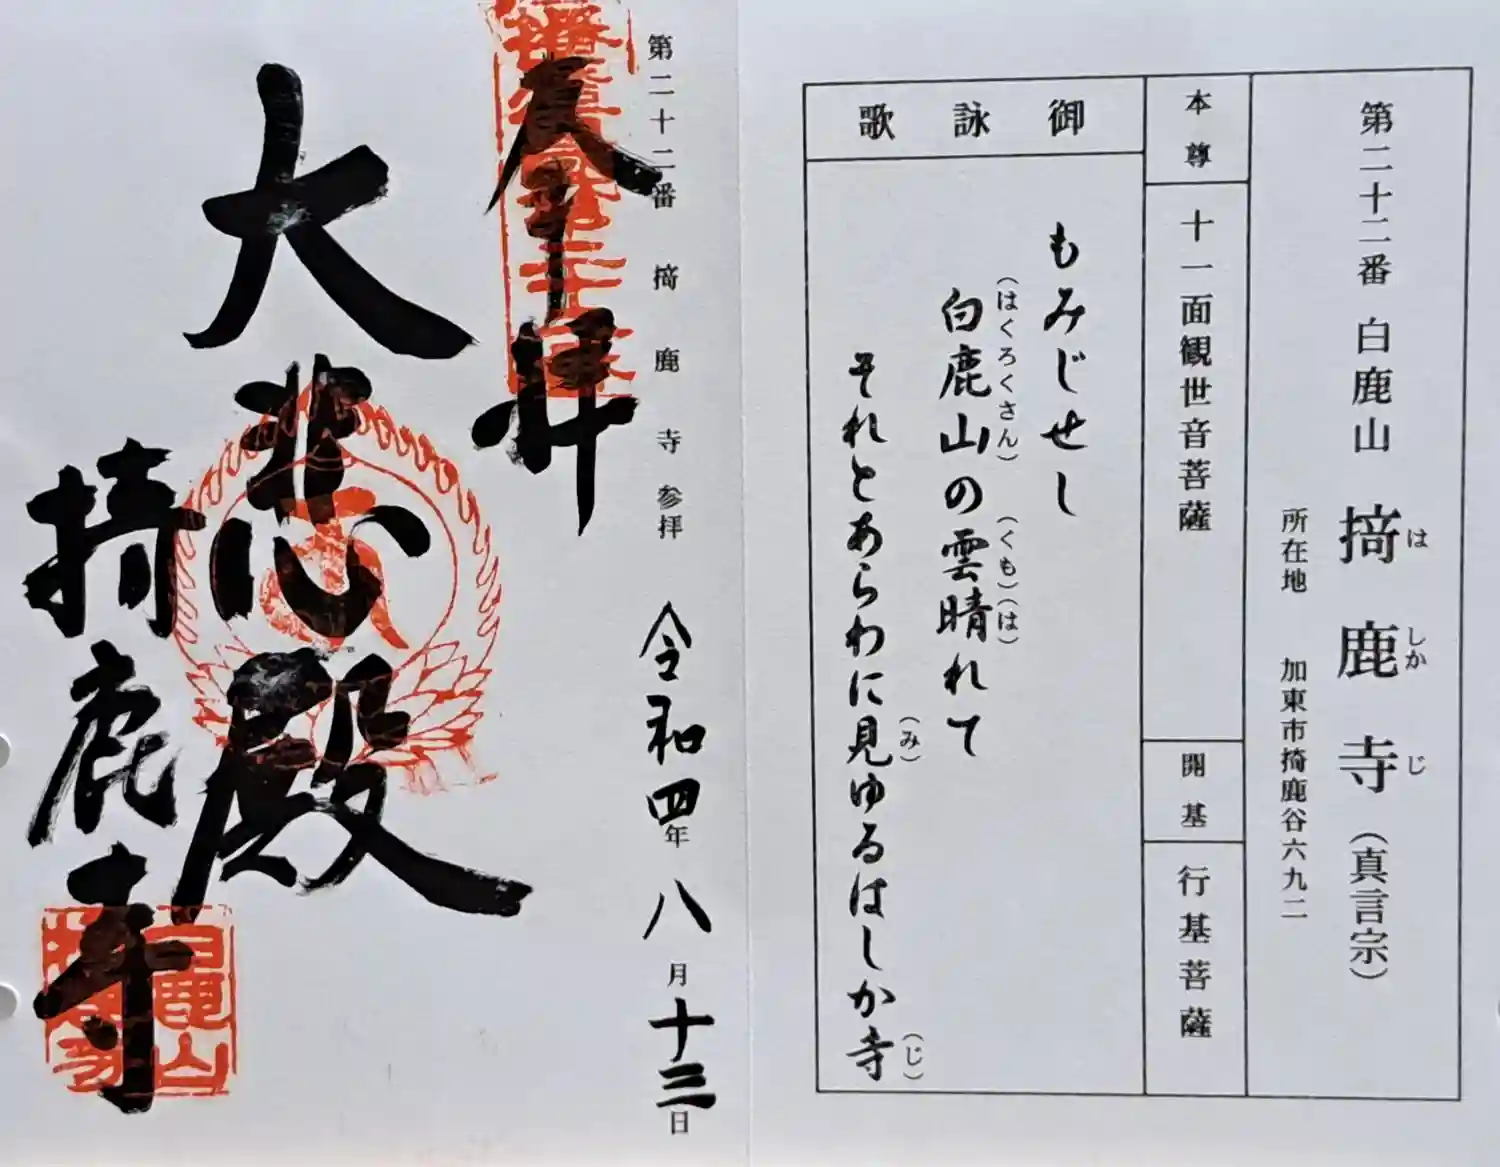 第二十二番 白鹿山 掎鹿寺(真言宗)
は しか じ
所在地 加東市掎鹿谷六九二
本尊
十一面観世音菩薩
開基
行基菩薩
御詠歌
もみじせし
白鹿山の雲晴れて
(はくろくさん) (くも)(は)
それとあらわに見ゆるはしか寺
(み) (じ)
第二十二番 掎鹿寺参拝
令和四年八月十三日
奉拝
大悲殿
掎鹿寺
白鹿山